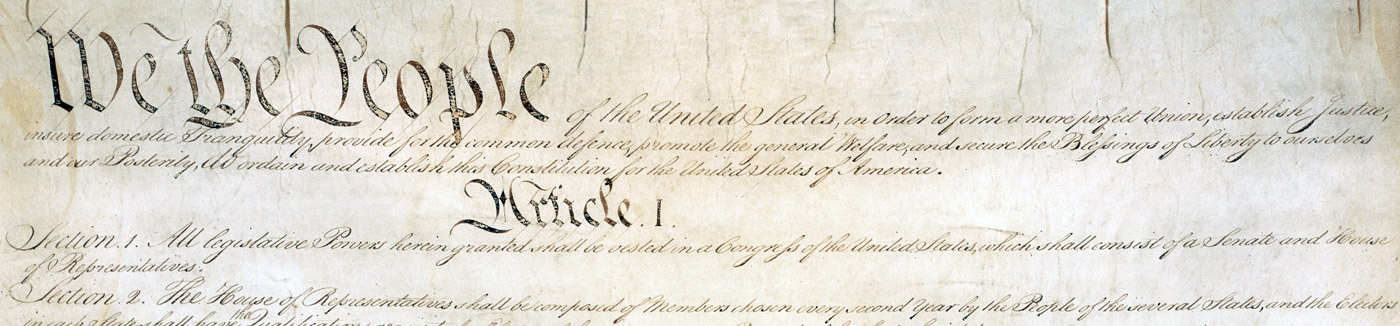 We the People of the United States, in Order to form a more perfect Union, establish Justice,
insure domestic Tranquility, provide for the common defence, promote the general Welfare, and secure the Blessings of Liberty to ourselves
and our Posterity, do ordain and establish this Constitution for the United States of America.
Article. I.
Section. 1. All legislative Powers herein granted shall be vested in a Congress of the United States, which shall consist of a Senate and House
of Representatives.
Section. 2. The House of Representatives shall be composed of Members chosen every second Year by the People of the several States, and the Electors
in each State shall have the Qualifications